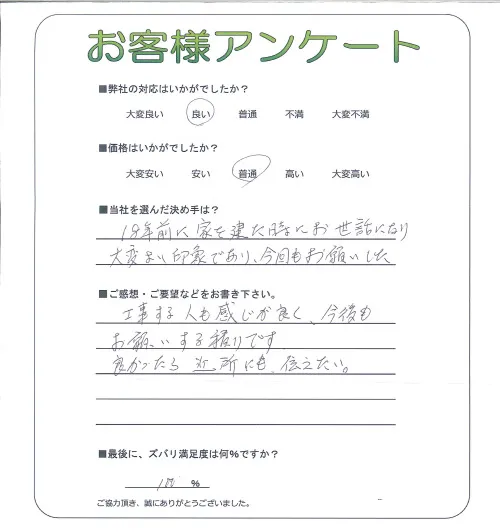 お客様アンケート
■弊社の対応はいかがでしたか？
大変良い 良い 普通 不満 大変不満
■価格はいかがでしたか？
大変安い 安い 普通 高い 大変高い
■当社を選んだ決め手は？
18年前に家を建た時にお世話になり
大変よい印象であり、今回もお願いした
■ご感想・ご要望などをお書き下さい。
工事する人も感じが良く、今後も
お願いする積りです
良かったら近所にも伝えたい。
■最後に、ズバリ満足度は何%ですか？
100 %
ご協力頂き、誠にありがとうございました。